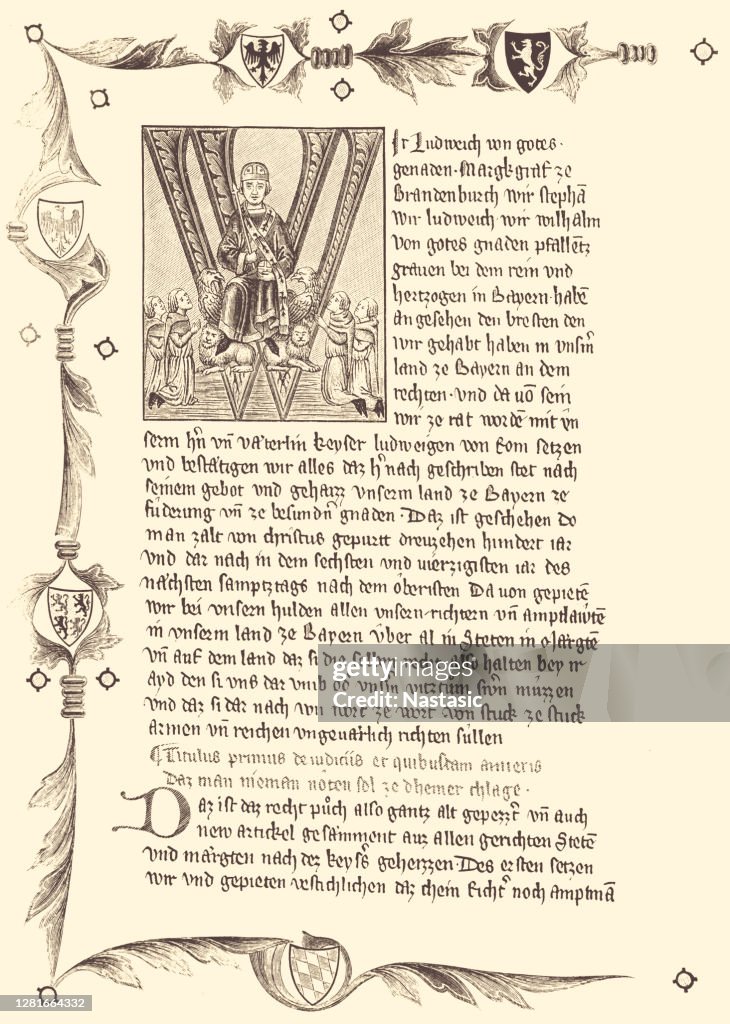 Ir Ludweich von gotes
genaden · Margkgraf ze
Brandenburch wir stephā
wir ludweich wir wilhalm
von gotes gnaden pfallētz
grauen bei dem rein vnd
hertzogen in Bayern habē
angesehen den bresten den
wir gehabt haben in vnsm̄
land ze Bayern an dem
rechten · vnd da vō sein
wir ze rat wordē mit vn
serm hn̄ vn̄ vaterlin keyser ludweigen von Rom setzen
vnd bestätigen wir alles daz hͬnach geschriben stet nach
seinem gebot vnd gehaizz vnserm land ze Bayern ze
fuderung vn̄ ze besundn̄ gnaden · Daz ist geschehen do
man zalt von christus gepurtt dreuzehen hundert iar
vnd dar nach in dem sechsten vnd vierzigisten iar des
nachsten samptztags nach dem oberisten Da von gepietē
wir bei vnsern hulden allen vnsern richtern vn̄ amptlautē
in vnserm land ze Bayern vber al in Steten in Margtē
vn̄ auf dem land daz si die selben halten bey ir
ayd den si vns dar vmb vnsm vitztum swn̄ muzzen
vnd daz si dar nach von wort ze wort von stuck ze stuck
armen vn̄ reichen vngeuarlich richten sullen
Titulus primus de iudiciis et quibusdam anneris
Daz man nieman noten sol ze dhemer chlage ·
Daz ist daz recht puch also gantz alt gepezzͬt vn̄ auch
new artickel gesamment auz allen gerichten Stetē
vnd margten nach dez keysͬs geheizzen · Des ersten setzen
wir vnd gepieten vestichlichen daz chein Richtͬ noch amptmā
gettyimages
Credit: Nastasic
1281664332